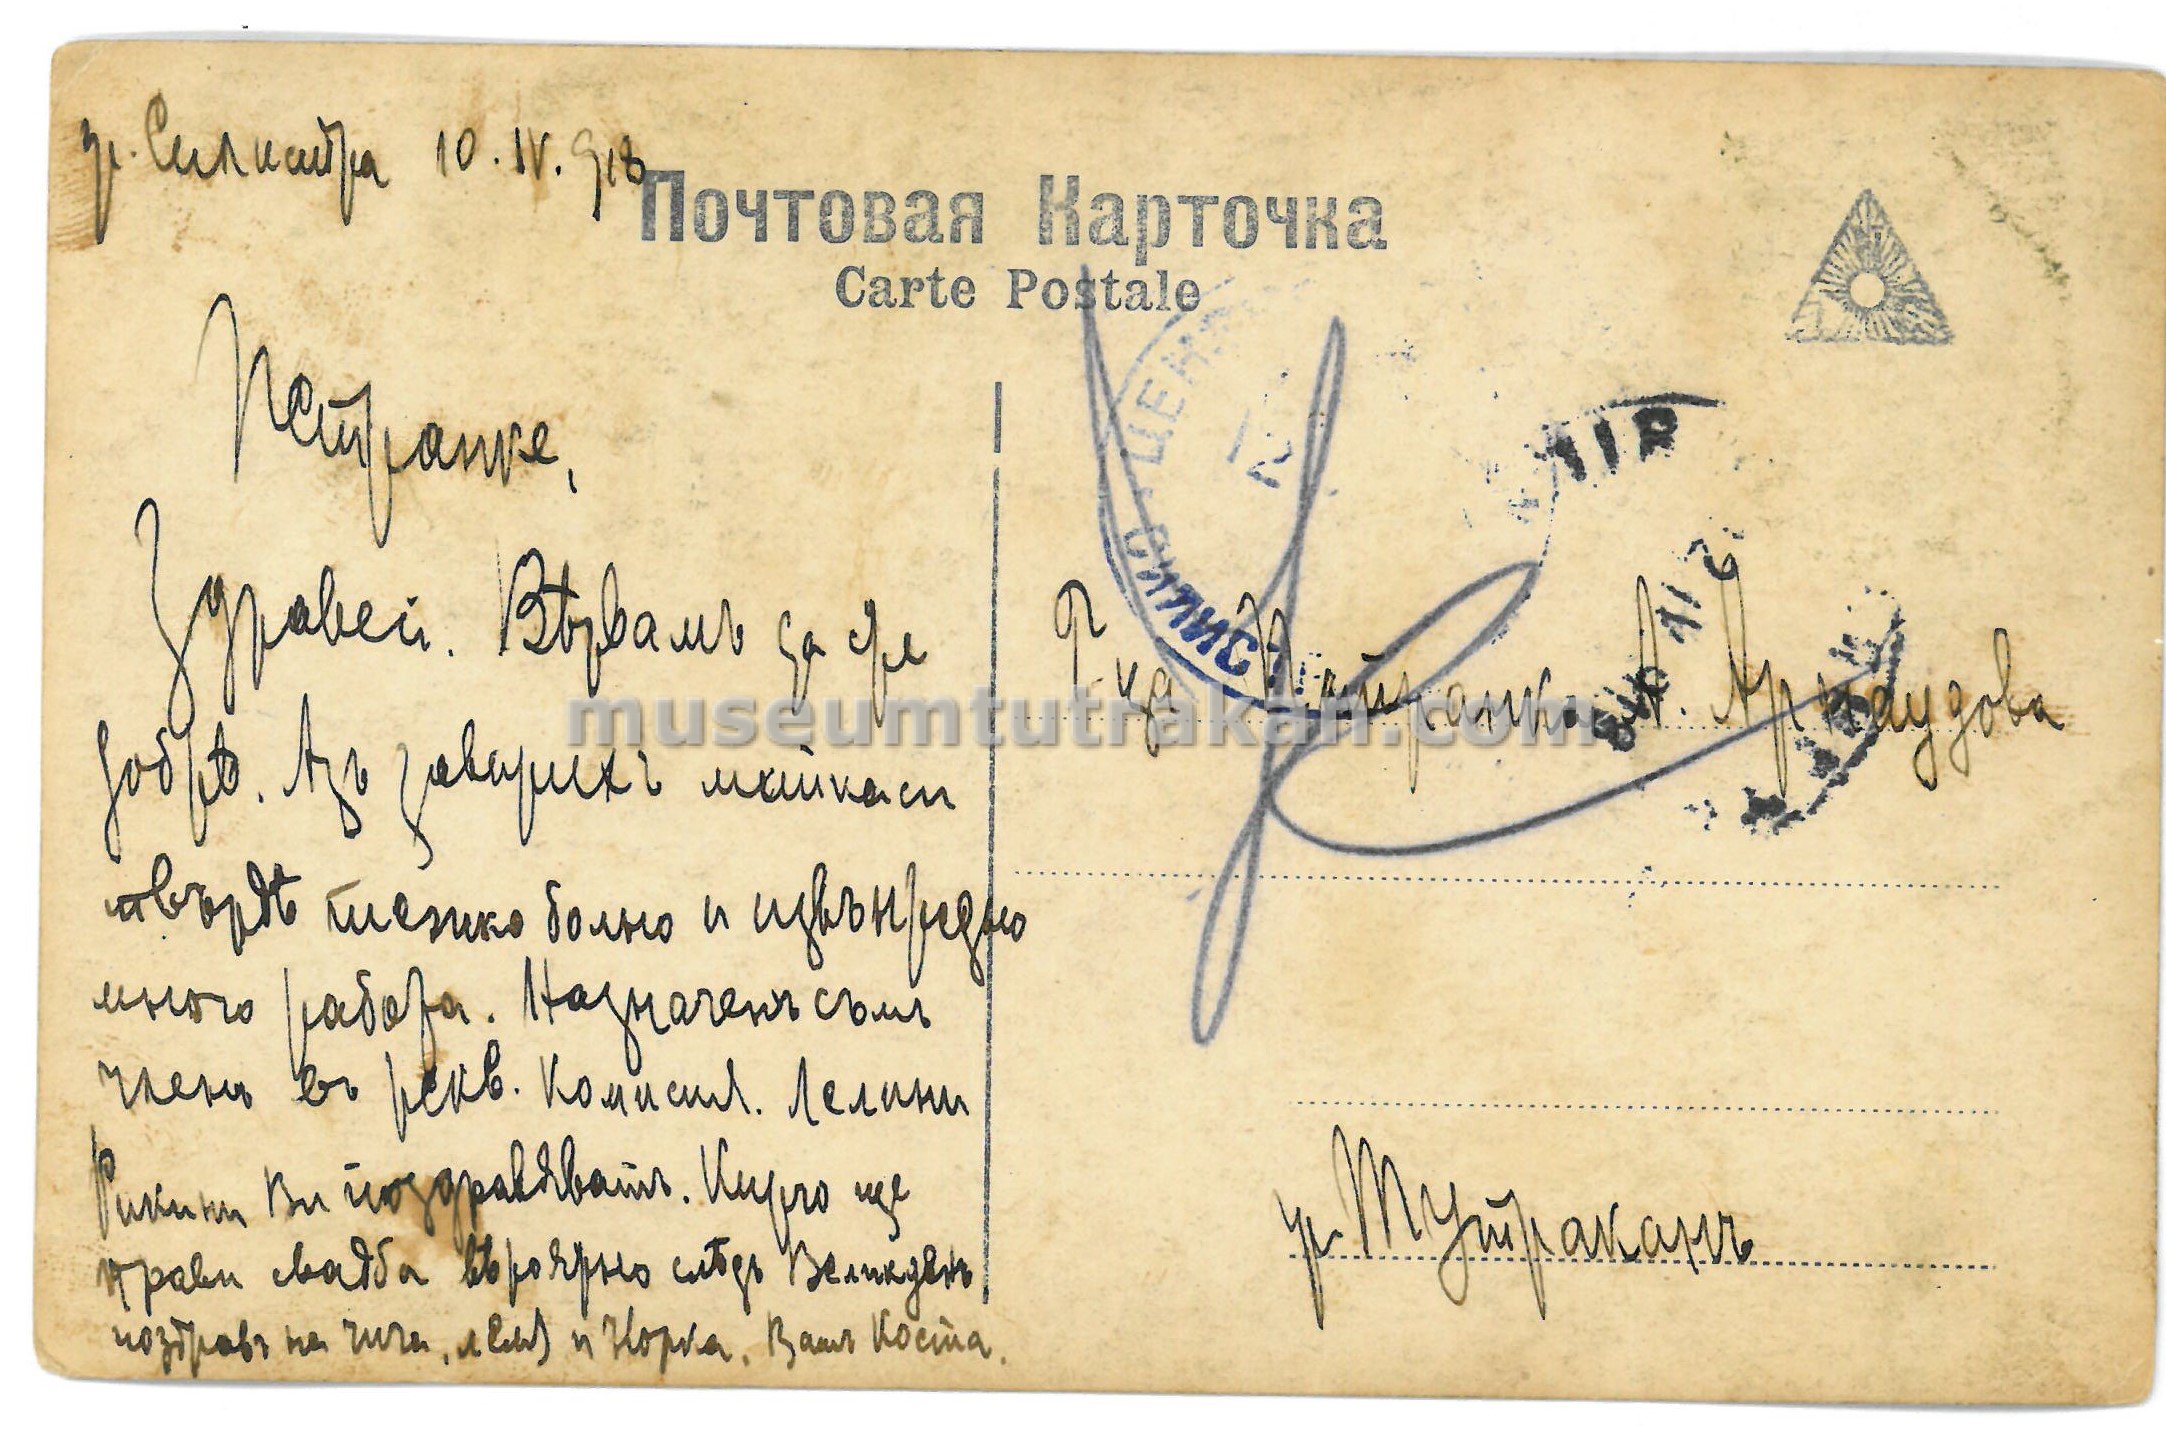 гр. Силистра 10.IV.918
Почтовая Карточка
Carte Postale
Петранке,
Здравей. Вѣрвамъ да сте
добрѣ. Азъ заварихъ майка си
твърдѣ тежко болно и извънредно
много работа. Назначенъ съмъ
членъ въ рекв. комисия. Лелини
Рикини Ви поздравяватъ. Кирчо ще
прави сватба вѣроятно слѣдъ Великдень
поздравъ на чича, леля и Норка. Вашъ Коста.
Г-ца Петранка А. Арнаудова
гр. Тутраканъ
ЦЕН
museumtutrakan.com